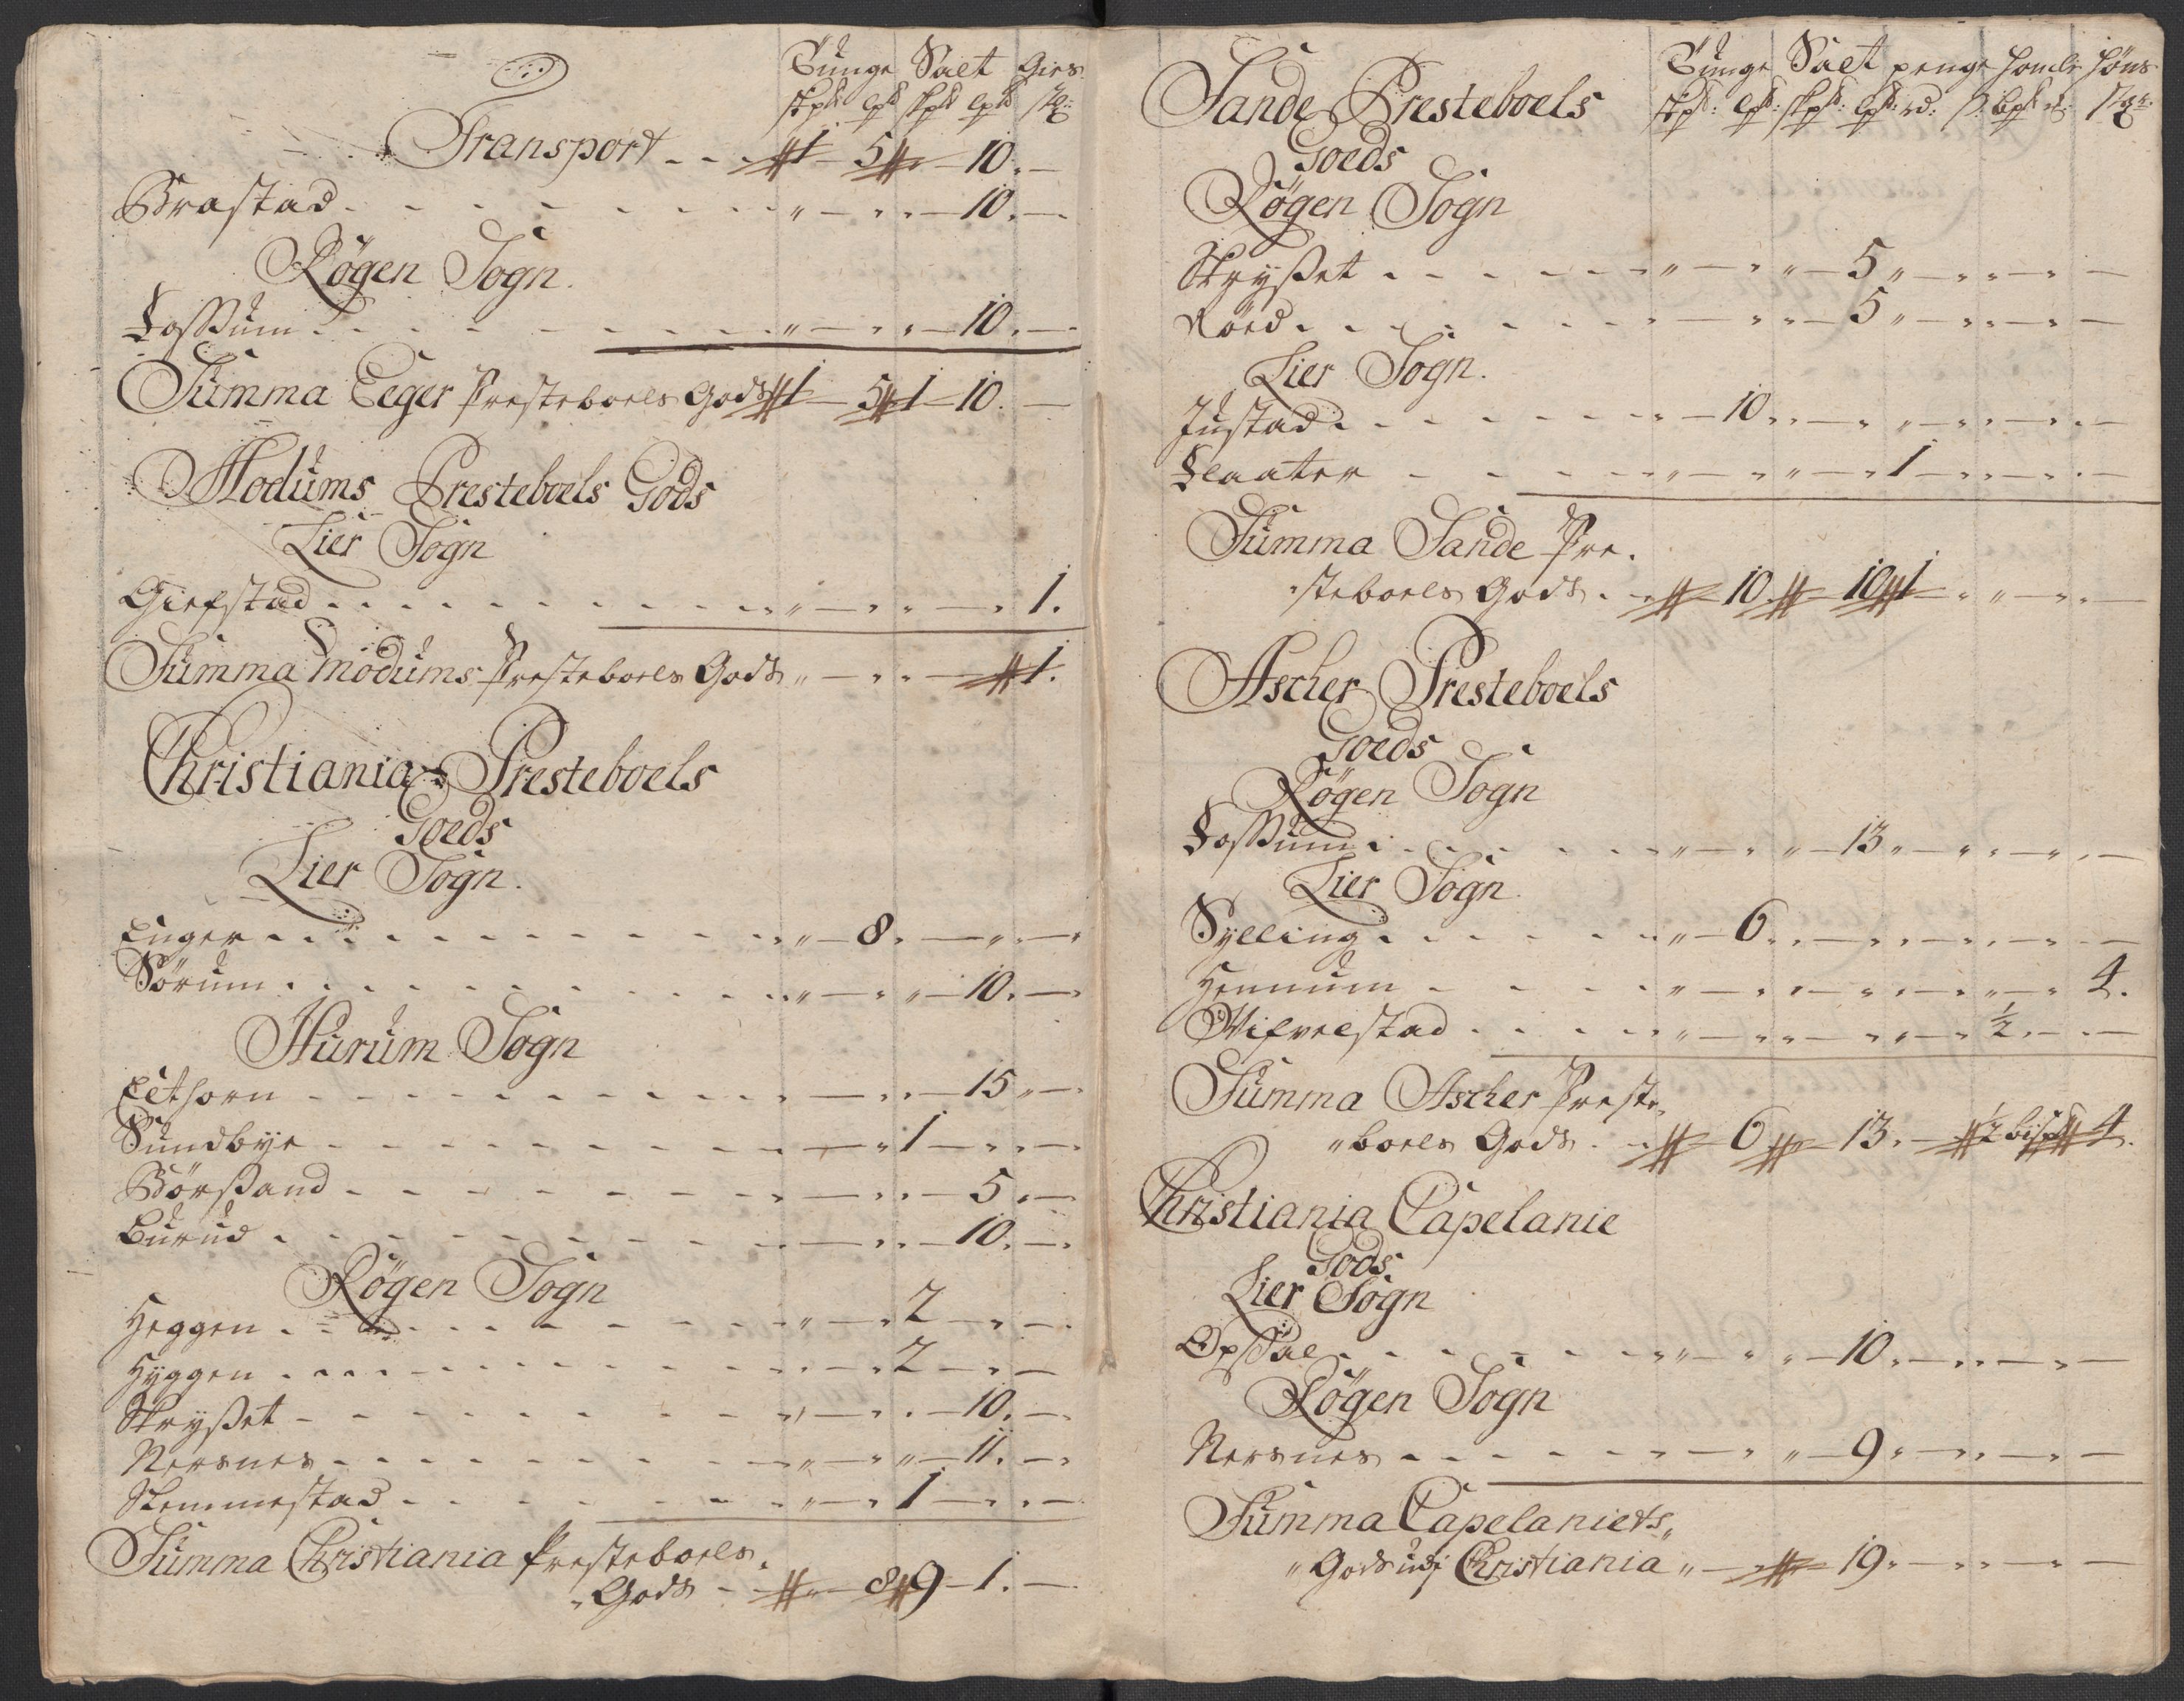 Tunge Salt Gies
skp℔ lp℔ skp℔ lp℔
Transport - - - # 1 - 5 # - 10. -
Brastad - - - - „ - „ „ - 10. -
Røgen Sogn.
Fossum - - - - „ - „ „ - 10. -
Summa Eeger Presteboels Gods # 1 - 5 # 1 - 10. -
Modums Presteboels Gods
Lier Sogn
Giefstad . . . . „ - „ „ - „ 1.
Summa Modums Presteboels Gods „ - „ „ - # 1.
Christiania Presteboels
Goeds
Lier Sogn.
Enger - - - - „ - 8. - „ - „
Sørum . . . . „ - „ „ - 10. -
Hurum Sogn
Eethorn - - - - - „ „ - 15 „ -
Sundbye - - - - - „ 1 - „ „ -
Børsand - - - - - „ „ - 5 „ -
Burud - - - - - „ „ - 10. -
Røgen Sogn
Heggen . - - - „ - „ 2 - „ -
Hyggen . . . . „ - „ 2 - „ -
Skrysset - - - - „ - „ „ - 10. -
Nersnes - - - - „ - „ „ - 11. -
Slemmestad - - - - „ - „ 1 - „ „ -
Summa Christiania Presteboels
„ Gods - # „ - 8 # 9 - 1. -
Tunge Salt penge Homle Høns
skp℔: lp℔: skp℔: lp℔: rd:
Sande Presteboels
Goeds
Røgen Sogn
Skrysset . - - - „ - „ „ - 5 „ - „ „ - „ -
Röed . - - - - „ „ - 5 „ - „ „ - „ -
Lier Sogn.
Justad . - - - - 10 „ „ - „ „ - „ „ - „ -
Flaaten - - - - „ - „ „ - „ 1 - „ „ - „ -
Summa Sande Pre-
„steboels Gods . - # - 10 # - 10 # 1 - „ „ - „ -
Ascher Presteboels
Goeds
Røgen Sogn
Fossum . - - - „ - „ „ - 13 „ - „ „ - „ „ -
Lier Sogn
Sylling . - - - „ - 6 „ „ - „ „ - „ „ - „ -
Hennum - - - - „ - „ „ - „ „ - „ „ - „ 4.
Wifvelstad . - - - „ - „ „ - „ „ - ½. - „ -
Summa Ascher Preste-
„boels Gods . - # - 6 # - 13. - # ½ bisp℔ # 4.
Christiania Capelanie
Gods
Lier Sogn
Opsal . - - - „ „ - „ „ - 10. - „ „ - „ -
Røgen Sogn
Nersnes . - - - - „ „ - 9 „ - „ „ - „ -
Summa Capelaniets
„ Gods udj Christiania „ - „ # - 19. - „ „ - „ -